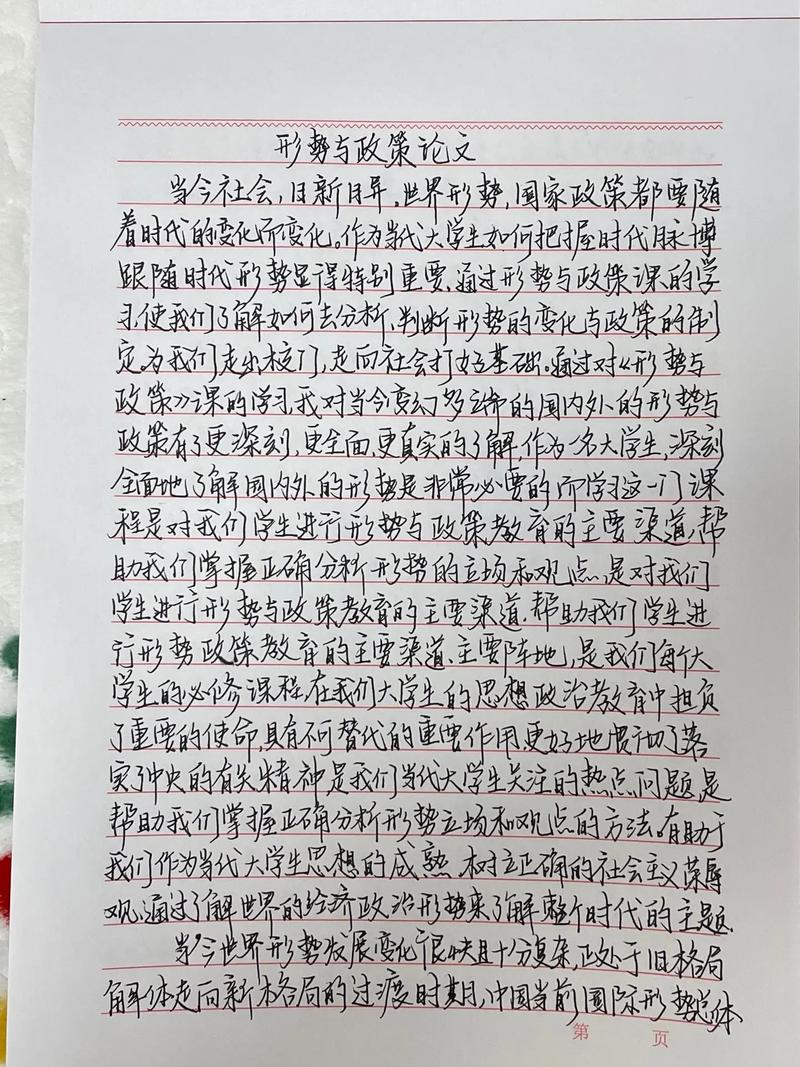 形势与政策论文
当今社会,日新月异。世界形势,国家政策都要随
着时代的变化而变化。作为当代大学生如何把握时代脉搏
跟随时代形势显得特别重要、通过形势与政策课的学
习,使我们了解如何去分析、判断形势的变化与政策的制
定。为我们走出校门,走向社会打好基础。通过对《形势与
政策》课的学习,我对当今变幻多端的国内外的形势与
政策有了更深刻、更全面、更真实的了解,作为一名大学生,深刻
全面地了解国内外的形势是非常必要的而学习这一门课
程是对我们学生进行形势与政策教育的主要渠道,帮
助我们掌握正确分析形势的立场和观点、是对我们
学生进行形势与政策教育的主要渠道.帮助我们学生进
行形势政策教育的主要渠道、主要阵地,是我们每个大
学生的必修课程,在我们大学生的思想政治教育中担负
了重要的使命,具有不可替代的重要作用,更好地贯切了落
实了中央的有关精神是我们当代大学生关注的热点问题,是
帮助我们掌握正确分析形势立场和观点的方法。有助于
我们作为当代大学生思想的成熟、树立正确的社会主义荣辱
观、通过了解世界的经济政治形势来了解整个时代的主题.
当今世界形势发展变化很快且十分复杂,正处于旧格局
解体走向新格局的过渡时期,中国当前国际形势总体
第 页